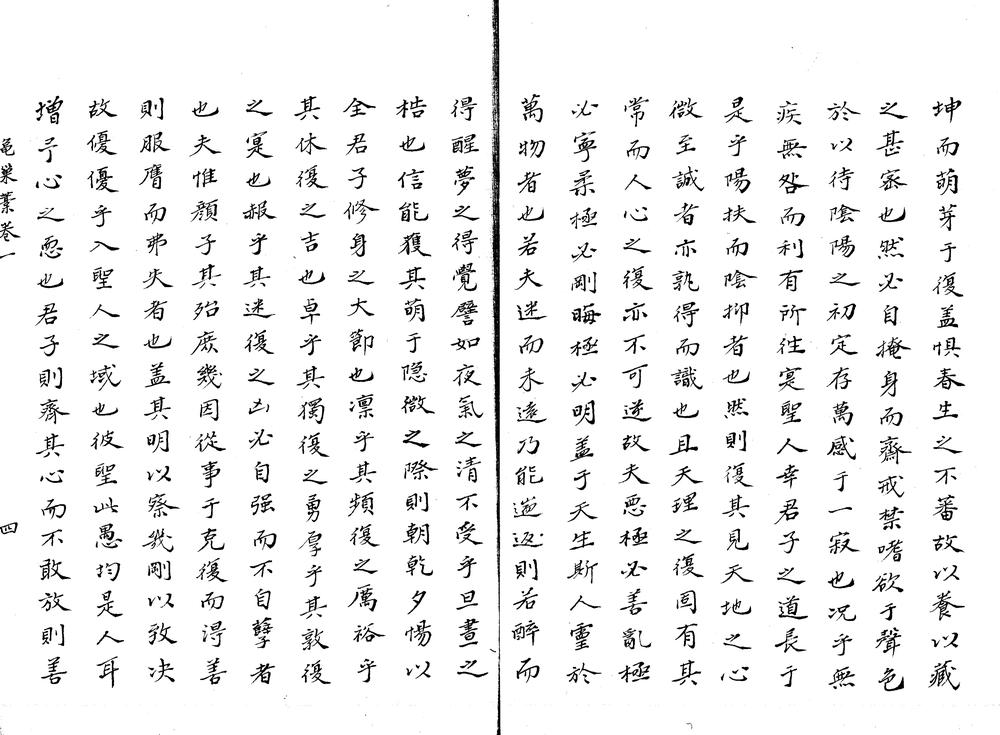 坤而萌芽于復盖惧春生之不蕃故以養以藏
之甚宻也然必自掩身而齋戒禁嗜欲于聲色
於以待陰陽之初定存萬感于一寂也况乎無
疾無咎而利有所往寔聖人幸君子之道長于
是乎陽扶而陰抑者也然則復其見天地之心
微至誠者亦孰得而識也且天理之復固有其
常而人心之復亦不可逆故夫惡極必善亂極
必寧柔極必剛晦極必明盖于天生斯人靈於
萬物者也若夫迷而未遠乃能遄返則若醉而
得醒夢之得覺譬如夜氣之清不受乎旦晝之
梏也信能獲其萌于隠微之際則朝乾夕惕以
全君子修身之大節也凛乎其頻復之厲裕乎
其休復之吉也卓乎其獨復之勇厚乎其敦復
之寔也赧乎其迷復之凶必自强而不自孽者
也夫惟顔子其殆庶幾因從事于克復而得善
則服膺而弗失者也盖其明以察幾剛以致决
故優優乎入聖人之域也彼聖此愚均是人耳
增予心之恧也君子則齋其心而不敢放則善
龜巢藁卷一
四